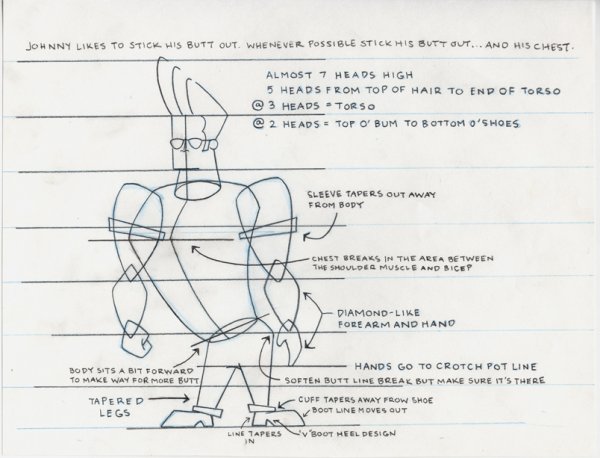 JOHNNY LIKES TO STICK HIS BUTT OUT. WHENEVER POSSIBLE STICK HIS BUTT OUT... AND HIS CHEST.
ALMOST 7 HEADS HIGH
5 HEADS FROM TOP OF HAIR TO END OF TORSO
@ 3 HEADS = TORSO
@ 2 HEADS = TOP O'BUM TO BOTTOM O'SHOES
SLEEVE TAPERS OUT AWAY
FROM BODY
CHEST BREAKS IN THE AREA BETWEEN
THE SHOULDER MUSCLE AND BICEP
DIAMOND-LIKE
FOREARM AND HAND
BODY SITS A BIT FORWARD
TO MAKE WAY FOR MORE BUTT
HANDS GO TO CROTCH POT LINE
SOFTEN BUTT LINE BREAK BUT MAKE SURE IT'S THERE
TAPERED
LEGS
CUFF TAPERS AWAY FROW SHOE
BOOT LINE MOVES OUT
LINE TAPERS
IN
"V" BOOT HEEL DESIGN